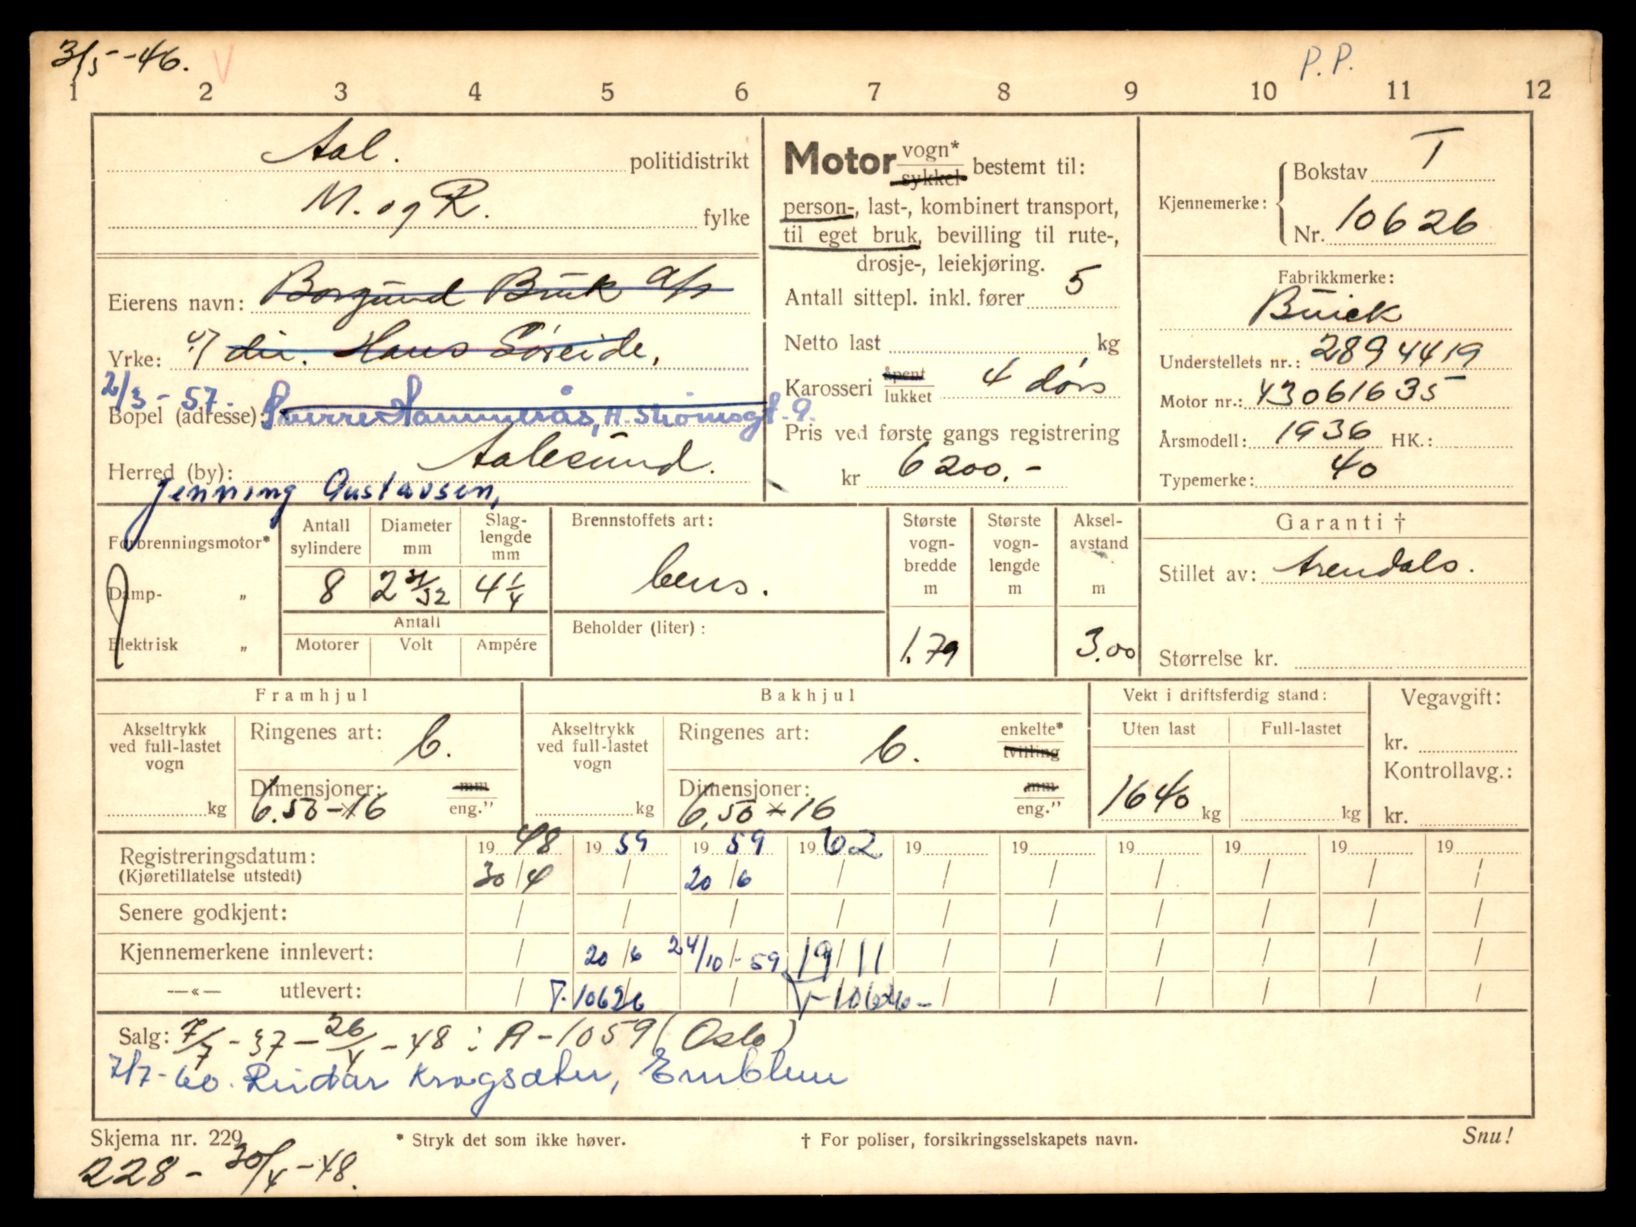 3/5-46. V P.P.
1 2 3 4 5 6 7 8 9 10 11 12
Aal. politidistrikt
M. og R. fylke
Eierens navn: Borgund Bruk a/s
Yrke: v/ dir. Hans Søreide,
2/3-57.
Bopel (adresse): Sverre Hammerås, H. Strømsgt. 9.
Herred (by): Aalesund.
Jenning Gustavsen,
Motor vogn* sykkel bestemt til:
person-, last-, kombinert transport,
til eget bruk, bevilling til rute-,
drosje-, leiekjøring.
Antall sittepl. inkl. fører 5
Netto last kg
Karosseri åpent lukket 4 dørs
Pris ved første gangs registrering
kr 6200.-
Kjennemerke: Bokstav T
Nr. 10626
Fabrikkmerke:
Buick
Understellets nr.: 2894419
Motor nr.: 43061635
Årsmodell: 1936 HK.:
Typemerke: 40
Forbrenningsmotor*
Damp- „
Elektrisk „
Antall sylindere 8
Diameter mm 2 31/32
Slaglengde mm 4 1/4
Antall
Motorer Volt Ampére
Brennstoffets art:
bens.
Beholder (liter):
Største vogn-bredde m 1.79
Største vogn-lengde m
Aksel-avstand m 3.00
Garanti †
Stillet av: Arendals.
Størrelse kr.
Framhjul
Akseltrykk ved full-lastet vogn kg
Ringenes art: b.
Dimensjoner: 6.50-16 mm eng.”
Bakhjul
Akseltrykk ved full-lastet vogn kg
Ringenes art: b. enkelte* tvilling
Dimensjoner: 6.50×16 mm eng.”
Vekt i driftsferdig stand:
Uten last Full-lastet
1640 kg kg
Vegavgift:
kr.
Kontrollavg.:
kr.
Registreringsdatum: 1948 1959 1959 1962 19 19 19 19 19 19
(Kjøretillatelse utstedt) 30/4 / 20/6 / / / / / / /
Senere godkjent: / / / / / / / / / /
Kjennemerkene innlevert: / 20/6 24/10-59 19/11 / / / / / /
—«— utlevert: / T.10626 / T-10626- / / / / / /
Salg: 7/7-37-26/4-48: A-1059 (Oslo)
7/7-60. Reidar Krogsæter, Emblem
Skjema nr. 229 * Stryk det som ikke høver. † For poliser, forsikringsselskapets navn. Snu!
228-30/4-48.